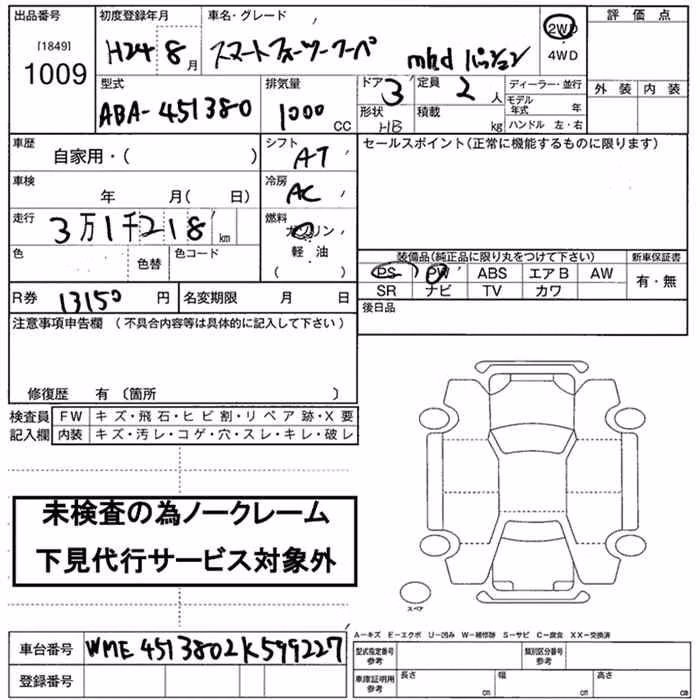 出品番号 初度登録年月 車名・グレード 評価点
[1849] 1009 H24 8月 スマートフォーツークーペ mhd パッション 2WD・4WD
外装 内装
型式 ABA-451380 排気量 1000 CC ドア 3 形状 HB 定員 2人 積載 kg ディーラー・並行 モデル年式 年 ハンドル 左・右
車歴 自家用・( ) シフト AT セールスポイント(正常に機能するものに限ります)
車検 年 月( 日) 冷房 AC
走行 3万1千218km 燃料 ガソリン 軽油 ( )
色 色替 色コード 装備品(純正品に限り丸をつけて下さい) 新車保証書
PS PW ABS エアB AW 有・無
SR ナビ TV カワ
R券 13150円 名変期限 月 日 後日品
注意事項申告欄 (不具合内容等は具体的に記入して下さい)
修復歴 有 (箇所 )
検査員 FW キズ・飛石・ヒビ割・リペア跡・X要
記入欄 内装 キズ・汚レ・コゲ・穴・スレ・キレ・破レ
未検査の為ノークレーム
下見代行サービス対象外
スペア
A−キズ E−エクボ U−凹み W−補修跡 S−サビ C−腐食 XX−交換済
車台番号 WME4513802K599227 型式指定番号 参考 類別区分番号 参考
登録番号 車庫証明用 参考 長さ cm 幅 cm 高さ cm